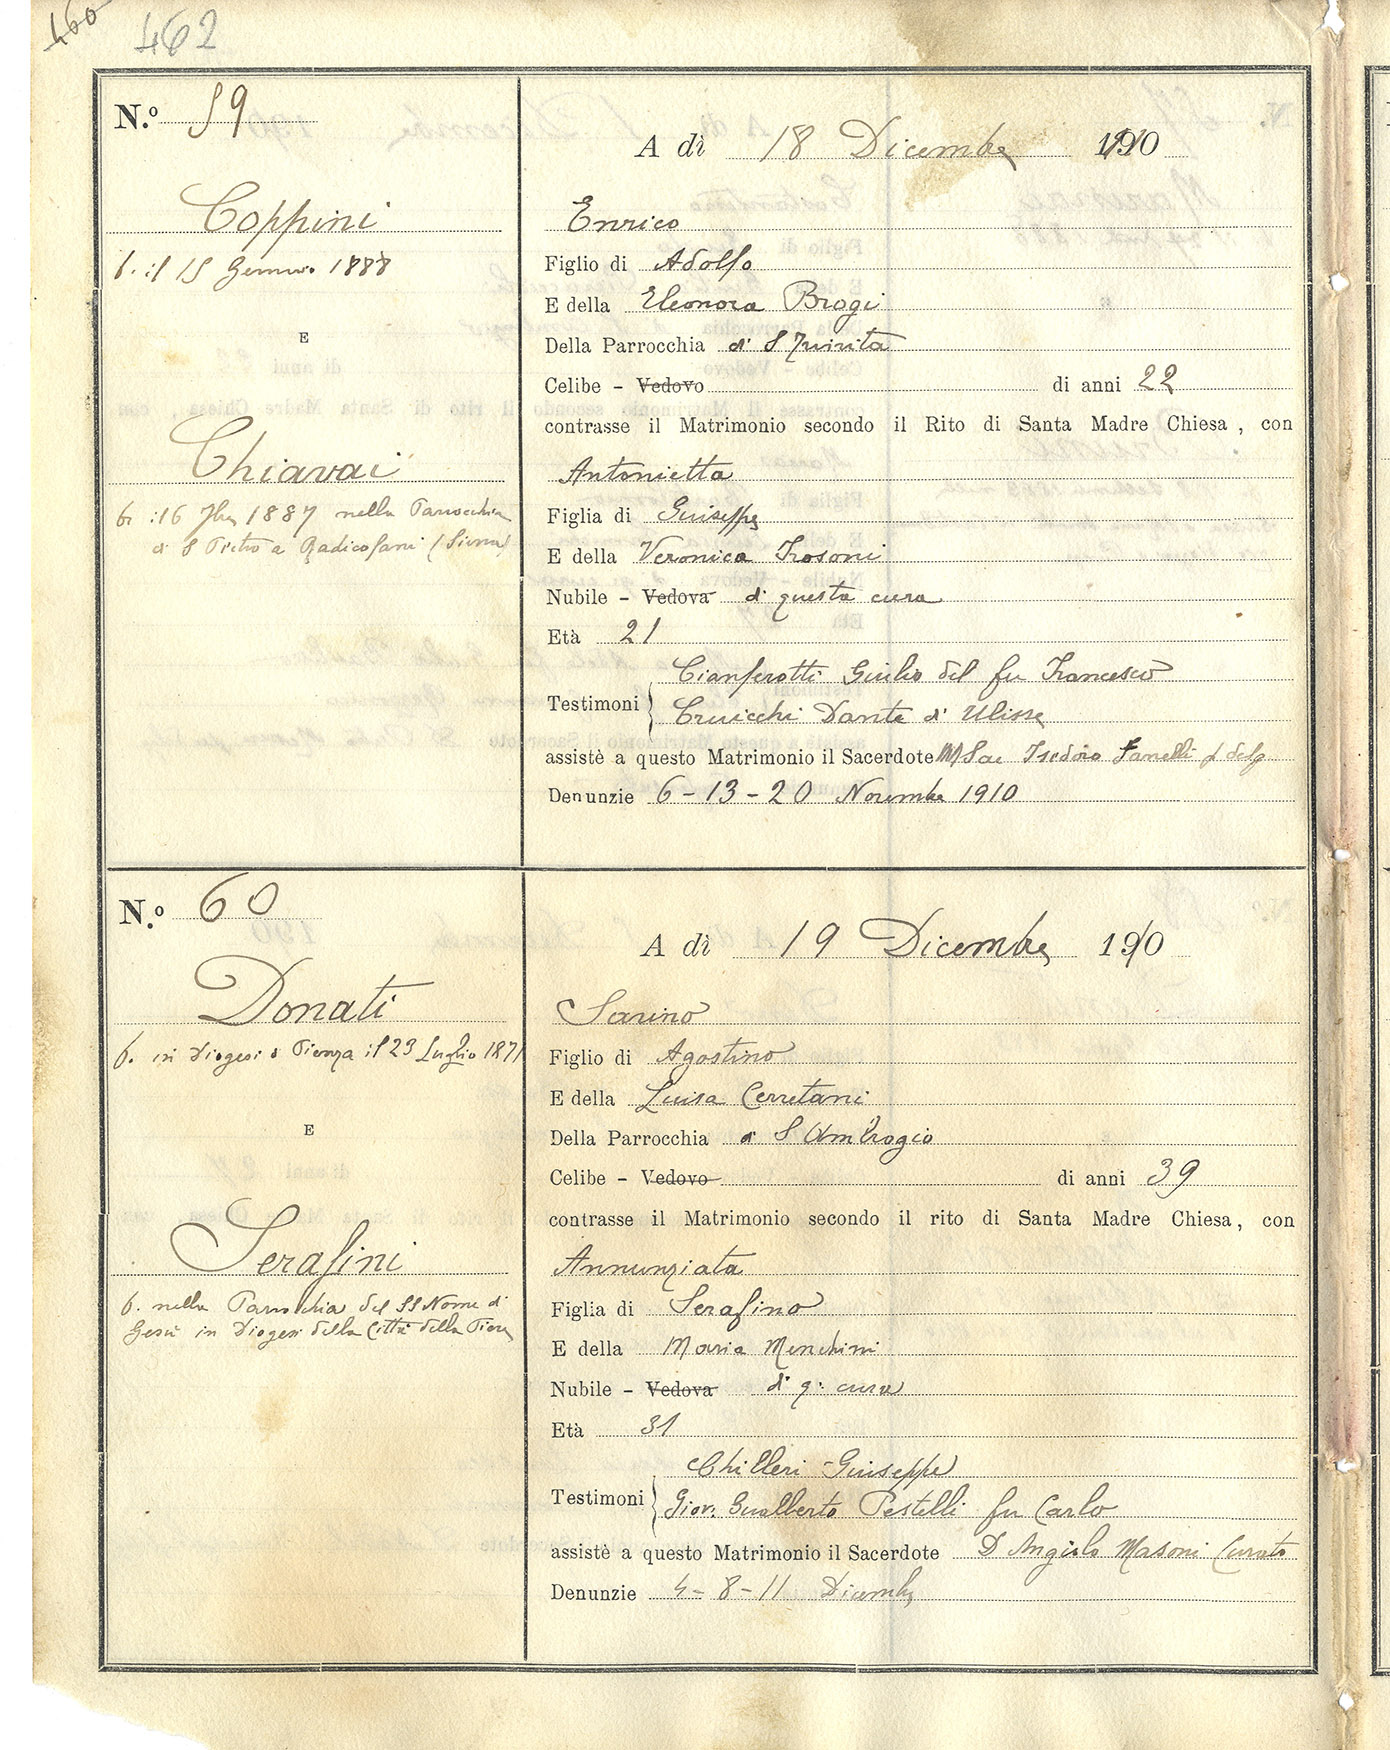 460
462
N.º 59
A dì 18 Dicembre 1910
Coppini
b. il 15 Gennaio 1888
E
Chiavai
b. il 6 7bre 1887 nella Parrocchia
di S Pietro a Radicofani (Siena)
Enrico
Figlio di Adolfo
E della Eleonora Brogi
Della Parrocchia di S Trinita
Celibe - Vedovo di anni 22
contrasse il Matrimonio secondo il Rito di Santa Madre Chiesa, con
Antonietta
Figlia di Giuseppe
E della Veronica
Nubile - Vedova di questa cura
Età 21
Testimoni Cianferotti Giulio del fu Francesco
Dante di Ulisse
assistè a questo Matrimonio il Sacerdote Isidoro Fanelli
Denunzie 6-13-20 Novembre 1910
N.º 60
A dì 19 Dicembre 1910
Donati
b. in Diogesi di Pienza il 23 Luglio 1871
E
Serafini
b. nella Parrochia del SS Nome di
Gesù in Diogesi della Città della Pieve
Savino
Figlio di Agostino
E della Luisa Cerretani
Della Parrocchia di S Ambrogio
Celibe - Vedovo di anni 39
contrasse il Matrimonio secondo il rito di Santa Madre Chiesa, con
Annunziata
Figlia di Serafino
E della Maria Menchini
Nubile - Vedova di q. cura
Età 31
Testimoni Chilleri Giuseppe
Giov. Gualberto Pestelli fu Carlo
assistè a questo Matrimonio il Sacerdote D Angiolo Masoni Curato
Denunzie 4-8-11 Dicembre